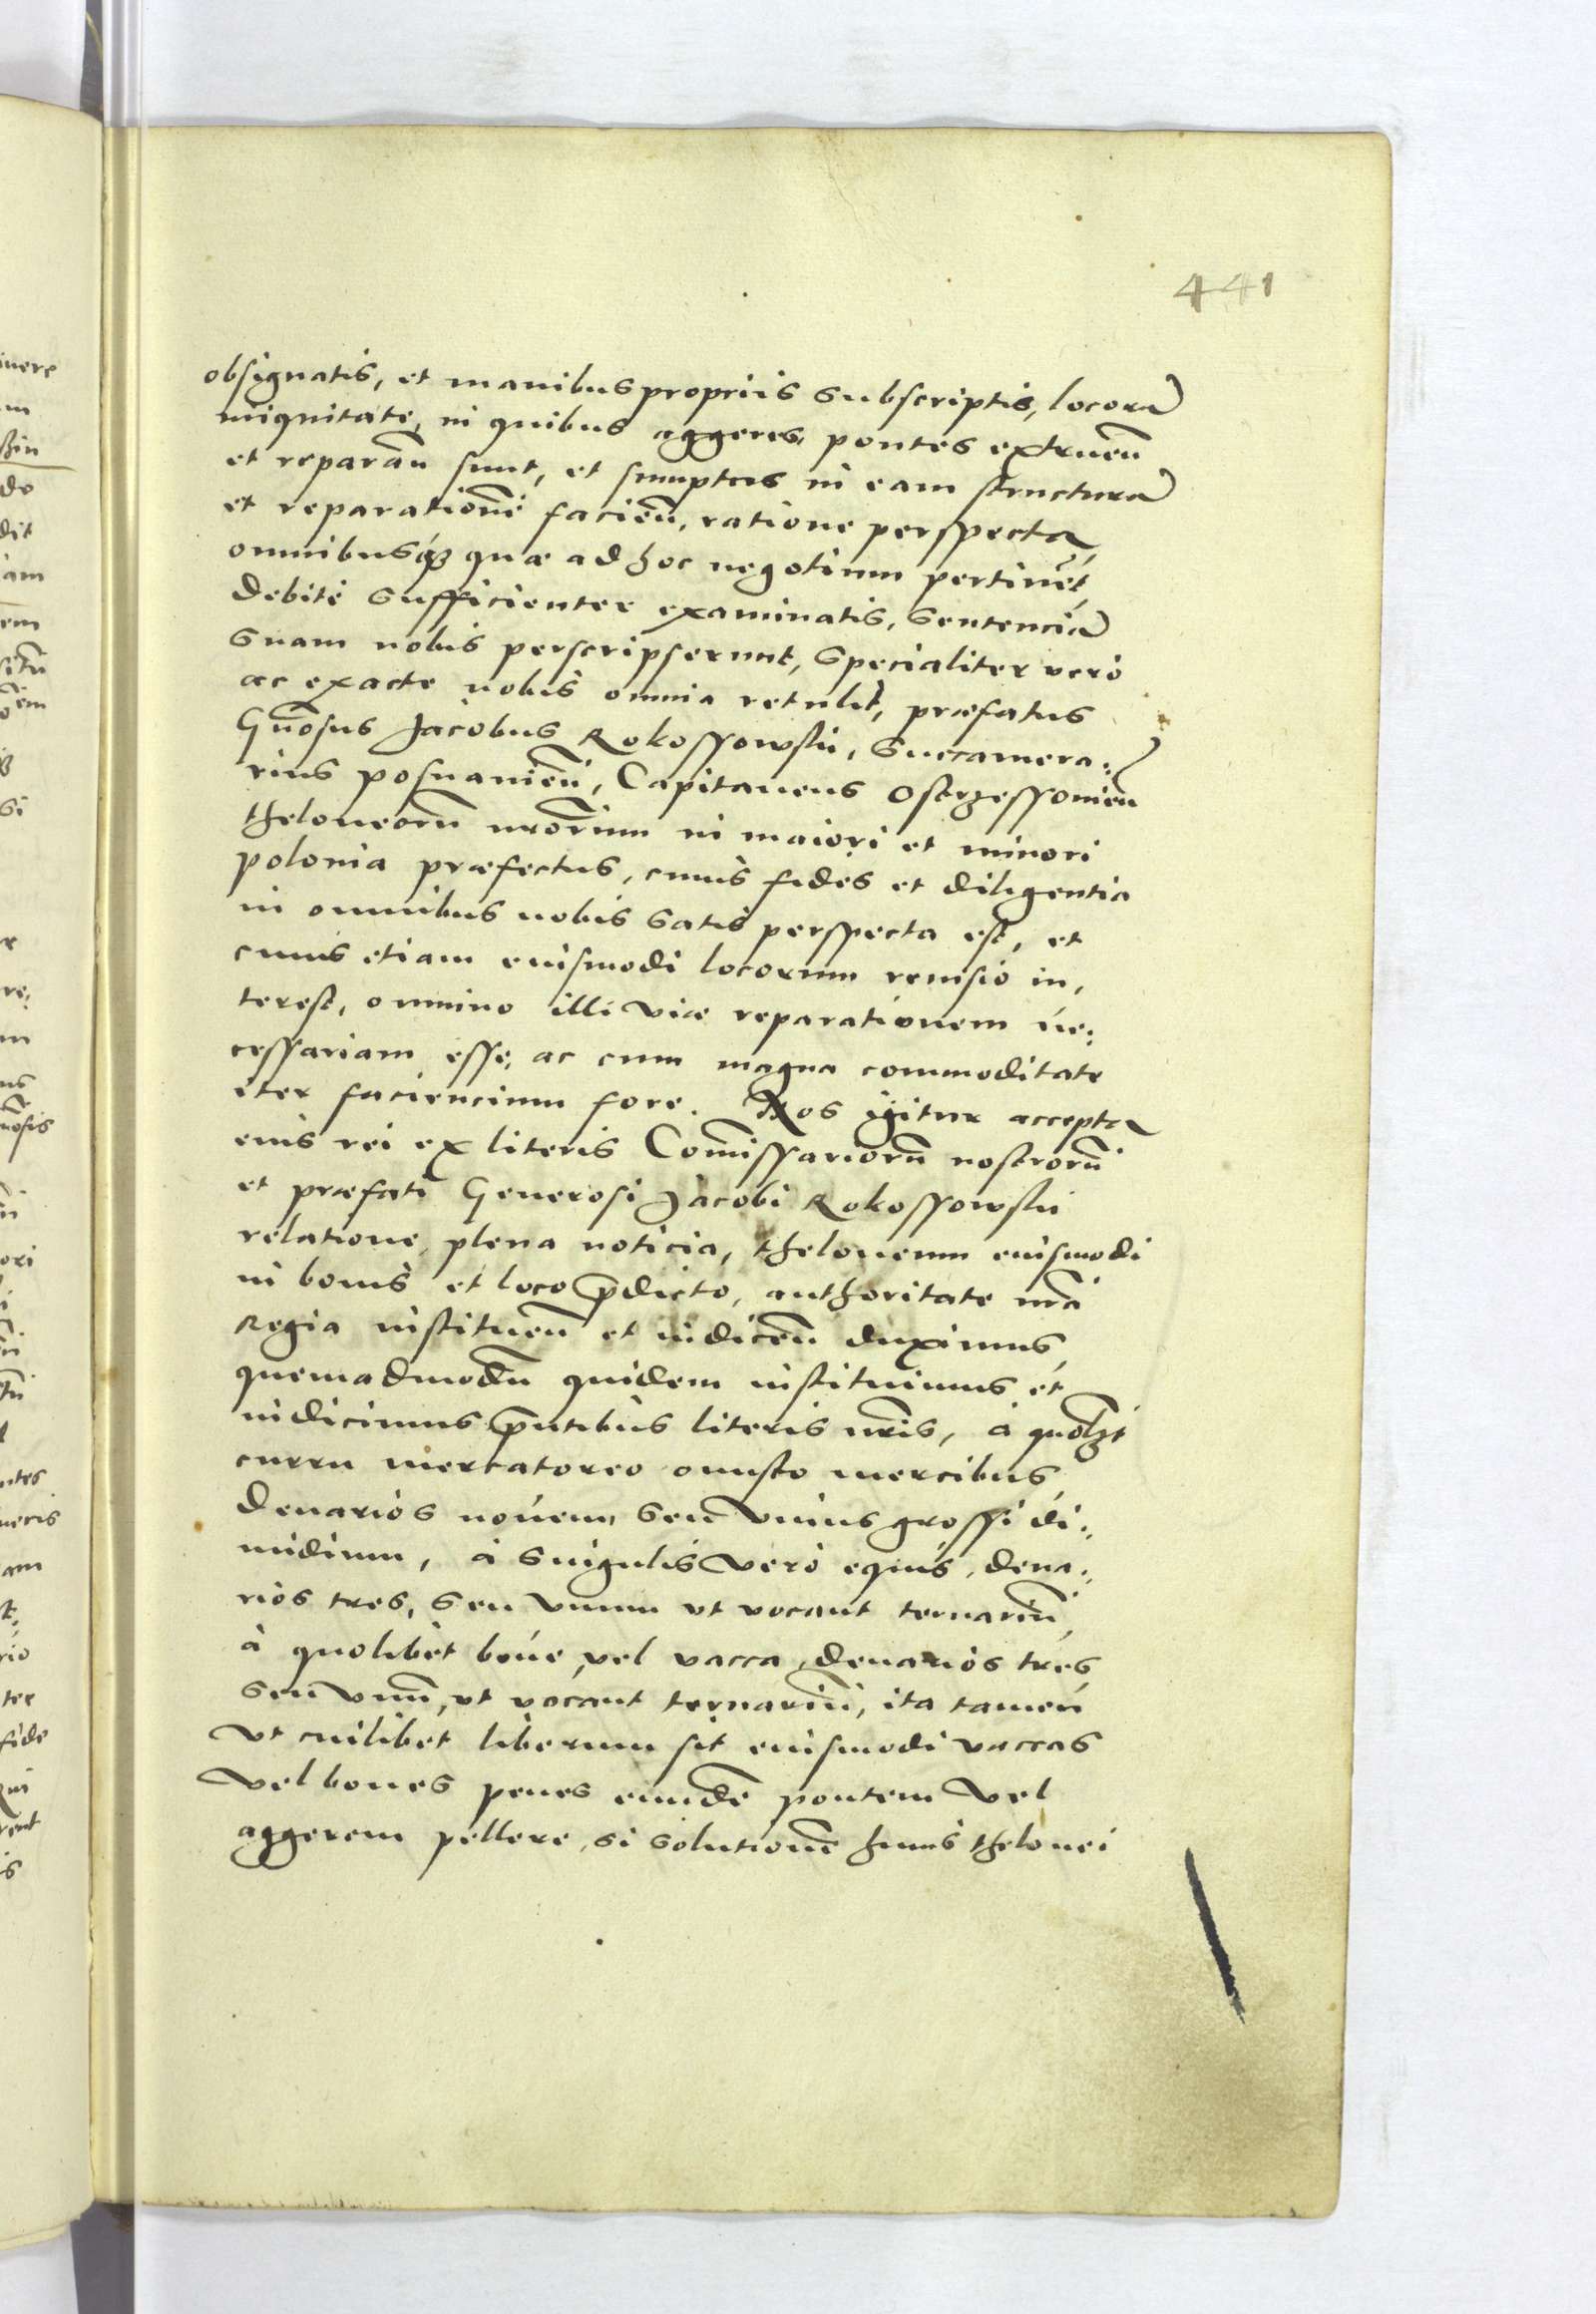 441
obsignatis, et manibus propriis subscriptis, locorũ
iniquitate, in quibus aggeres, pontes extruen̄
et reparan̄ sunt, et sumptus in eam structurã
et reparationẽ facien̄, ratione perspecta,
omnibusq₃ quæ ad hoc negotium pertinẽt,
debite sufficienter examinatis, sentenciã
suam nobis perscripserunt, specialiter vero
ac exacte nobis omnia retulit, præfatus
Gñosus Jacobus Rokossowski, succamera:
rius posnanien̄, Capitaneus Ostrzessonien̄
theloneorũ nrorum in maiori et minori
polonia præfectus, cuius fides et diligentia
in omnibus nobis satis perspecta est, et
cuius etiam eiusmodi locorum reuisio in,
terest, omnino illi viæ reparationem ne:
cessariam esse, ac cum magna commoditate
iter faciencium fore. Nos igitur accepta
eius rei ex literis Com̃issariorũ nostrorũ
et præfati Generosi Jacobi Rokossowski
relatione, plena noticia, theloneum eiusmodi
in bonis et loco p̃dicto, authoritate nrã
Regia instituen̄ et indicen̄ duximus,
quemadmodũ quidem instituimus et
indicimus p̃ntibus literis nrĩs, à quolz̃t
curru mercatoreo onusto mercibus,
denarios nouem, seu vnius grossi di:
midium, à singulis vero equis, dena:
rios tres, seu vnum vt vocant ternariũ,
à quolibet boue, vel vacca, denarios tres
seu vnũ, vt vocant ternariũ, ita tamen
vt cuilibet liberum sit eiusmodi vaccas
vel boues penes eundẽ pontem vel
aggerem pellere, si solutionẽ huius thelonei